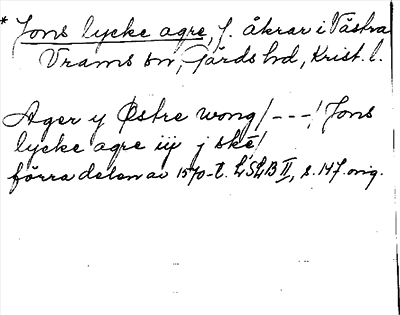 * Jons lycke agre, f. åkrar i Västra
Vrams sn, Gärds hd, Krist. l.
Ager y Østre wong / - - - / Jons
lycke agre iij j skē /
förra delen av 1570-t. LSLB II, s. 147. orig.